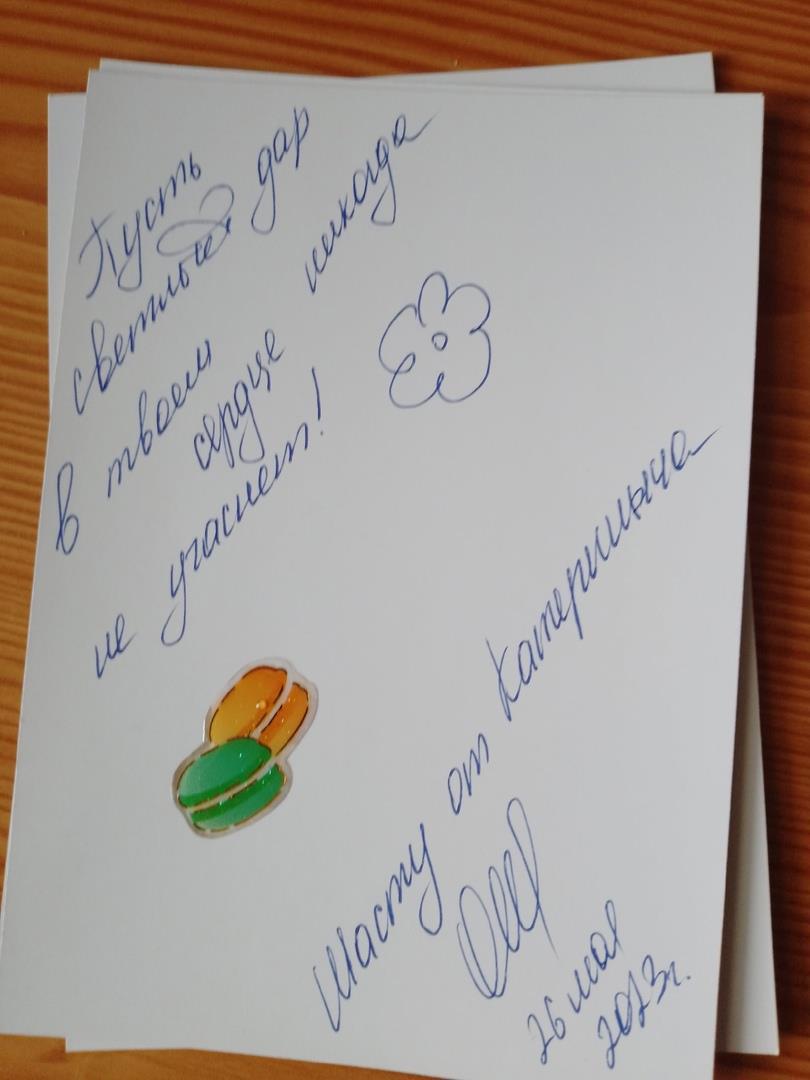 Пусть
светлый дар
в твоем никогда
сердце
не угаснет!
Шасту от Катериныча
26 мая
2023г.